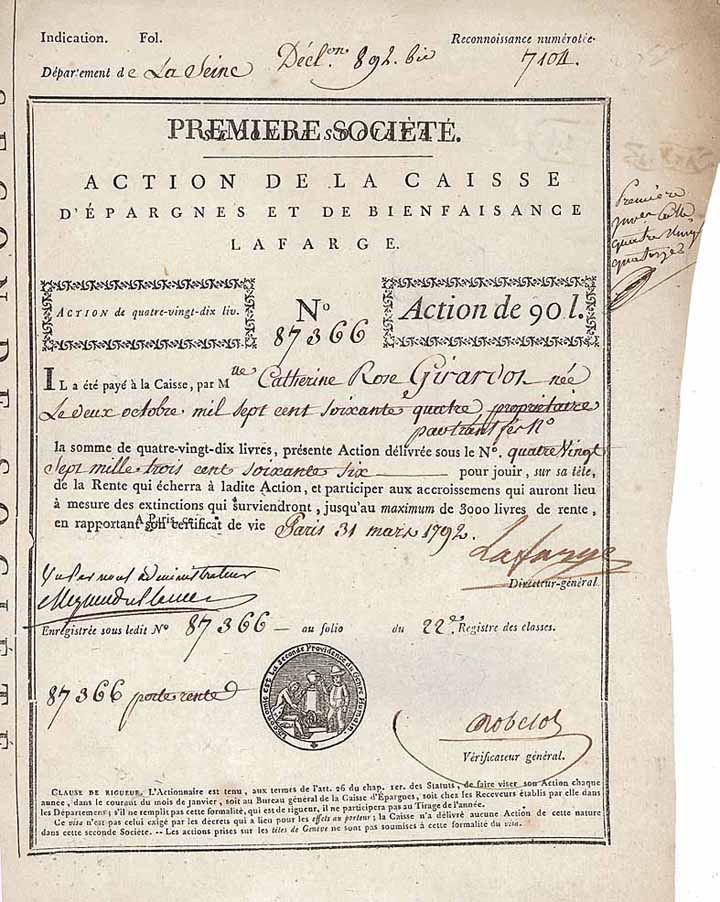 Indication. Fol. Reconnoissance numérotée
Département de La Seine Décl.on 892. bis 7104.
PREMIERE SOCIÉTÉ.
ACTION DE LA CAISSE
D'ÉPARGNES ET DE BIENFAISANCE
LAFARGE.
Première
quatre vingt
quatorze
ACTION de quatre-vingt-dix liv. No 87366 Action de 90 l.
IL a été payé à la Caisse, par Mlle Catherine Rose Girardot née
Le deux octobre mil sept cent soixante quatre propriétaire
par transfert No
la somme de quatre-vingt-dix livres, présente Action délivrée sous le No. quatre Vingt
Sept mille trois cent soixante six pour jouir, sur sa tête,
de la Rente qui écherra à ladite Action, et participer aux accroissemens qui auront lieu
à mesure des extinctions qui surviendront, jusqu'au maximum de 3000 livres de rente,
en rapportant son certificat de vie Paris 31 mars 1792.
A Paris ce
Lafarge
Directeur-général.
Vu par nous administrateur
Enregistrée sous ledit No 87366 au folio du 22e. Registre des classes.
87366 porte rente
L'économie est La Seconde Providence du Genre Humain.
Vérificateur général.
CLAUSE DE RIGUEUR. L'Actionnaire est tenu, aux termes de l'art. 26 du chap. 1er. des Statuts, de faire viser son Action chaque
année, dans le courant du mois de janvier, soit au Bureau général de la Caisse d'Épargnes, soit chez les Receveurs établis par elle dans
les Département; s'il ne remplit pas cette formalité, qui est de rigueur, il ne participera pas au Tirage de l'année.
Ce visa n'est pas celui exigé par les décrets qui a lieu pour les effets au porteur; la Caisse n'a délivré aucune Action de cette nature
dans cette seconde Société. -- Les actions prises sur les têtes de Genève ne sont pas soumises à cette formalité du visa.
SECONDE SOCIÉTÉ